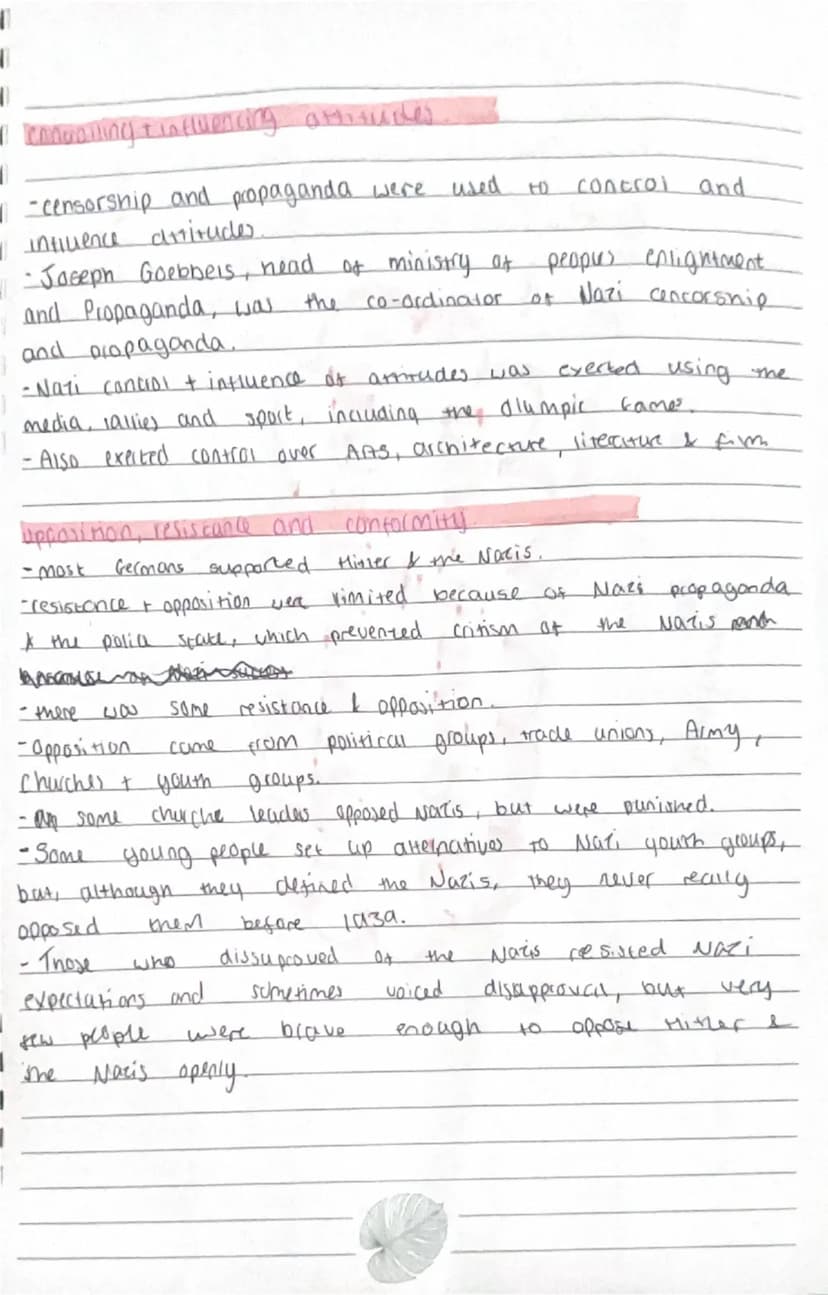 controlling + influencing attitudes
- censorship and propaganda were used to control and
influence attitudes.
- Joseph Goebbels, head of ministry of peoples enlightment
and Propaganda, was the co-ordinator of Nazi cencorship
and propaganda.
- Nazi control + influence of attitudes was exerted using the
media, rallies and sport, including the Olympic Games.
- Also exerted control over Arts, architecture, literature & film
opposition, resistance and conformity.
- most Germans supported Hitler & the Nazis.
- resistance + opposition were limited because of Nazi propaganda
& the police state, which prevented critism of the Nazis
- there was some resistance & opposition.
- opposition came from political groups, trade unions, Army,
Churches + youth groups.
- some churche leaders opposed Nazis, but were punished.
- Some young people set up alternatives to Nazi youth groups,
but, although they defined the Nazis, they never really
opposed them before 1939.
- Those who dissuproved of the Nazis resisted Nazi
expectations and sometimes voiced disapproval, but very
few people were brave enough to oppose Hitler &
the Nazis openly.